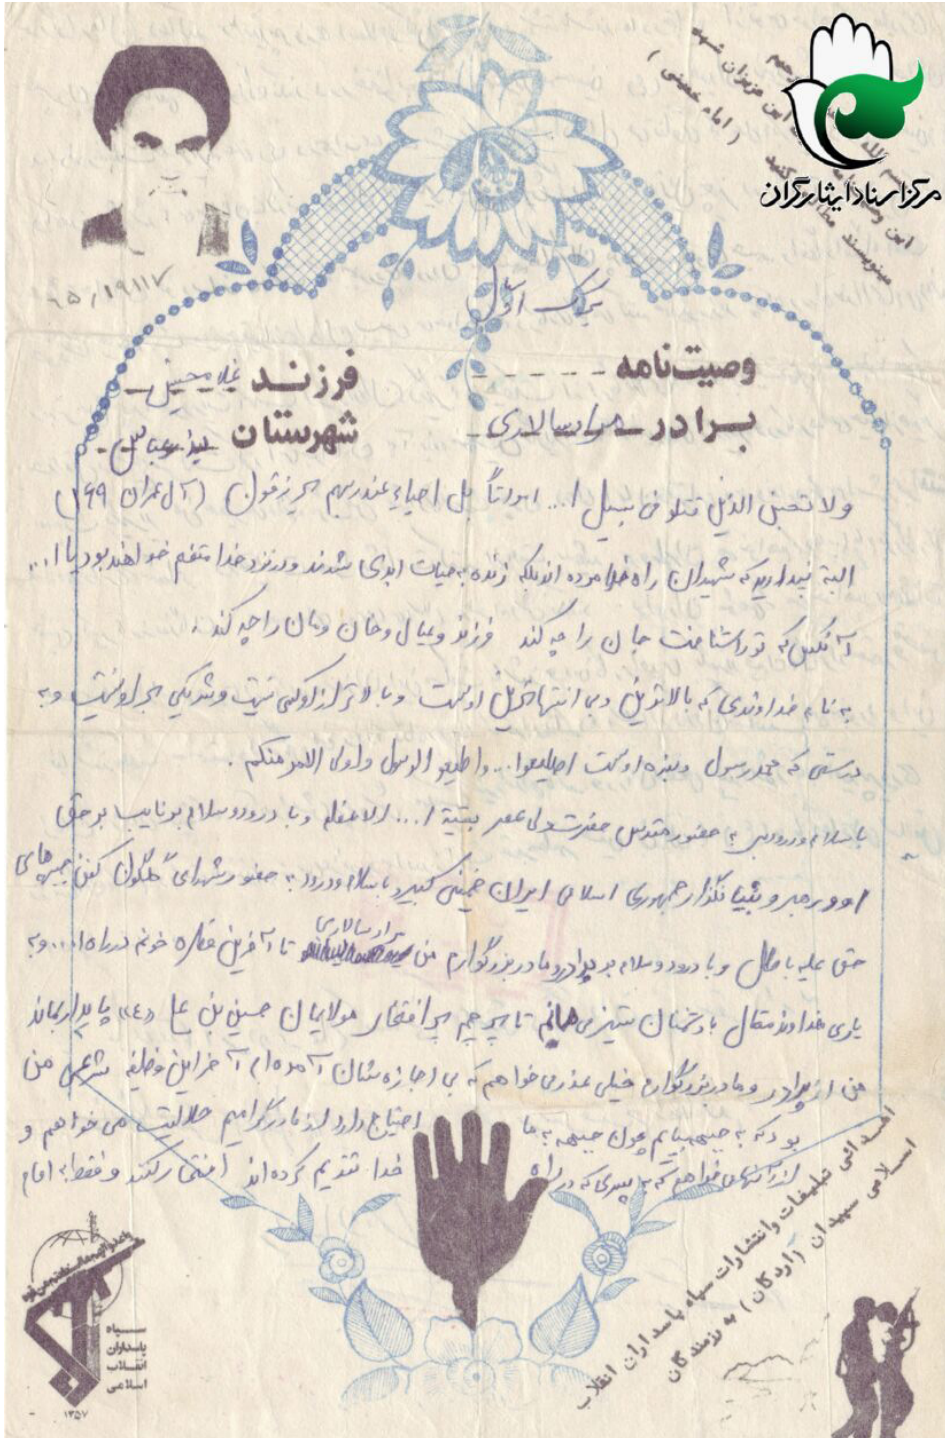 مرکز اسناد ایثارگران
(امام خمینی)
۶۵/۱۹۱۱۷
برگ اول
وصیت‌نامه - - - - -
فرزند غلامحسین
برادر مراد سالاری
شهرستان بندرعباس
ولا تحسبن الذین قتلو فی سبیل ا... امواتاً بل احیاء عند ربهم یرزقون (آل عمران ۱۶۹)
البته نپندارید که شهیدان راه خدا مرده اند بلکه زنده به حیات ابدی شدند و در نزد خدا متنعم خواهند بود یا ا...
آنکس که تو را شناخت جان را چه کند فرزند و عیال و خان و مان را چه کند.
به نام خداوندی که بالاترین و بی انتهاترین اوست و بالاتر از او کسی نیست و شریکی برای او نیست و به
درستی که محمد رسول و بنده اوست اطیعوا... و اطیعو الرسول و اولی الامر منکم.
با سلام و درود بر به حضور مقدس حضرت ولی عصر بقیة ا... الاعظم و با درود و سلام بر نایب بر حق
او و رهبر و بنیانگذار جمهوری اسلامی ایران خمینی کبیر و با سلام و درود به حضور شهدای گلگون کفن جبهه های
حق علیه باطل و با درود و سلام بر پدر و مادر بزرگوارم من مراد سالاری تا آخرین قطره خونم در راه ا... و به
یاری خداوند متعال با دشمنان ستیز می نمایم تا پرچم پر افتخار مولایمان حسین بن علی «ع» پایدار بماند
من از پدر و مادر بزرگوارم خیلی عذر می خواهم که بی اجازه شان آمده ام آخر این وظیفه شرعی من
بود که به جبهه بیایم چون جبهه به ما احتیاج دارد از مادر گرامیم حلالیت می خواهم و
از آنها می خواهم که به پسری که در راه خدا تقدیم کرده اند افتخار کنند و فقط به امام
اهدائی تبلیغات و انتشارات سپاه پاسداران انقلاب
اسلامی شهیدان (اردکان) به رزمندگان
سپاه
پاسداران
انقلاب
اسلامی
۱۳۵۷